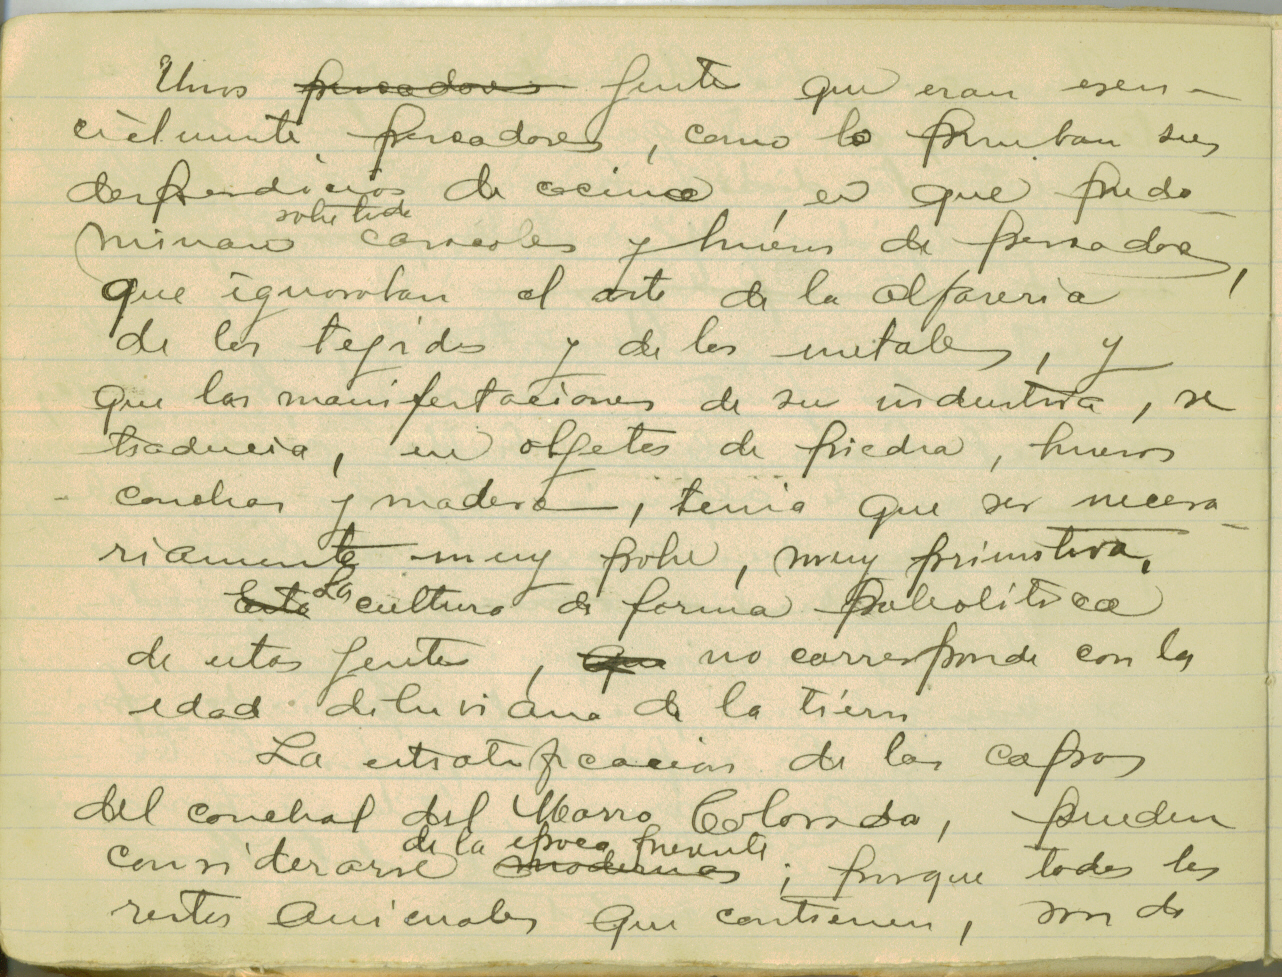 Unos pescadores gente que eran esen-
cielmente pescadores, como lo prueban sus
desperdicios de cocina, en que predo-
sobre todo
minan caracoles y huesos de pescados,
que ignoraban el arte de la alfareria
de los tejidos y de los metales, y
que las manifestaciones de su industria, se
traducia, en objetos de piedra, huesos
conchas y madera, tenia que ser necesa-
riamente muy pobre, muy primitiva.
Esta La cultura de forma paleolitica
de estas gentes, que no corresponde con la
edad diluviana de la tierra
La estratificacion de las capas
del conchal del Morro Colorado, pueden
de la epoca presente
considerarse modernas; porque todos los
restos animales que contienen, son de